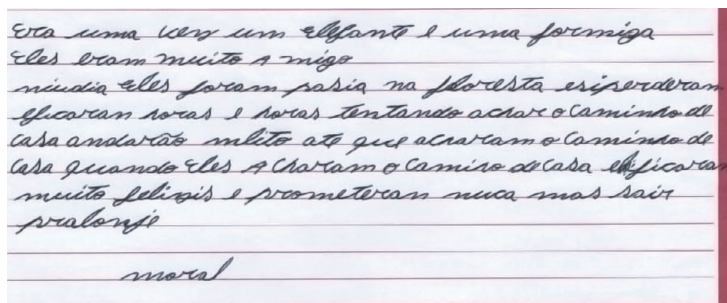 era uma vez um elefante e uma formiga
eles eram muito A migo
niudia eles foram pasia na floresta esiperderam
eficaram horas e horas tentando achar o caminho de
casa andarão mlito ate que acharam o caminho de
casa quando eles A charam o camiho de casa eficaram
muito felizis e prometeran nuca mas sair
pralonje
moral